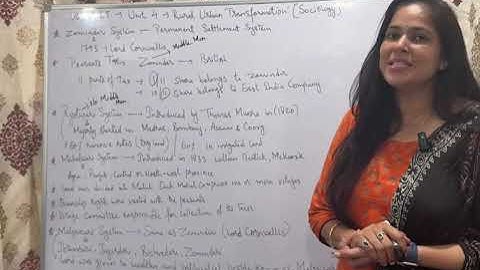 Unit 4 → Rural Urban Transformation (Sociology)
* Zamindar System → Permanent Settlement System
1793 → Lord Cornwallis Middle Man
* Peasants Taxes Zamindar → British
11 parts of Taxes → 1/11 share belongs to zamindar
→ 10/11 share belongs to East India Company
No Middle Man
* System → Introduced by Thomas Munro in (1820)
Majorly started in Madras, Bombay, Assam & Coorg
in irrigated land
* Mahalwari System → Introduced in 1833 William
Agra, Punjab, Central or North-west Province
* Land was divided at Mahals Each Mahal Comprises one or more villages
* Ownership rights were vested with the peasants
* Village Committee responsible for collection of the Taxes
* System → Same as Zamindar (Lord Cornwallis)
Zamindar
Land was given to